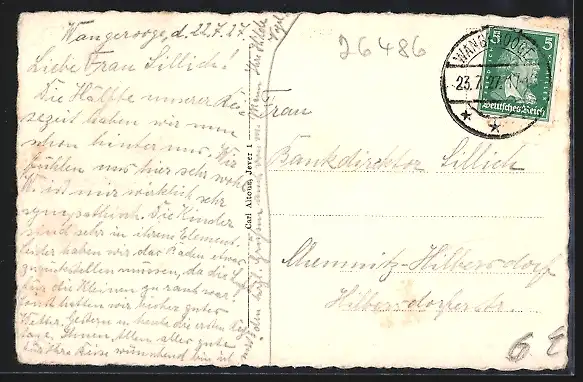 Wangerooge, d. 22.7.27.
Liebe Frau Sillich!
Die Hälfte unserer Rei-
sezeit haben wir nun
schon hinter uns. Wir
fühlen uns hier sehr wohl
W. ist mir wirklich sehr
sympathisch. Die Kinder
sind sehr in ihrem Element.
Leider haben wir das Baden etwas
zurückstellen müssen, da die Luft
für die Kleinen zu rauh war.
Sonst hatten wir bisher gutes
Wetter. Gestern u. heute die ersten
Ihnen Allen alles gute
für Ihre Reise wünschend bin ich
mit den
Carl Altona, Jever 1
26486
WANGEROOGE
23.7.27.
5 5
Deutsches Reich
Frau
Bankdirektor Sillich
Chemnitz-Hilbersdorf
Hilbersdorfer Str.
6 E